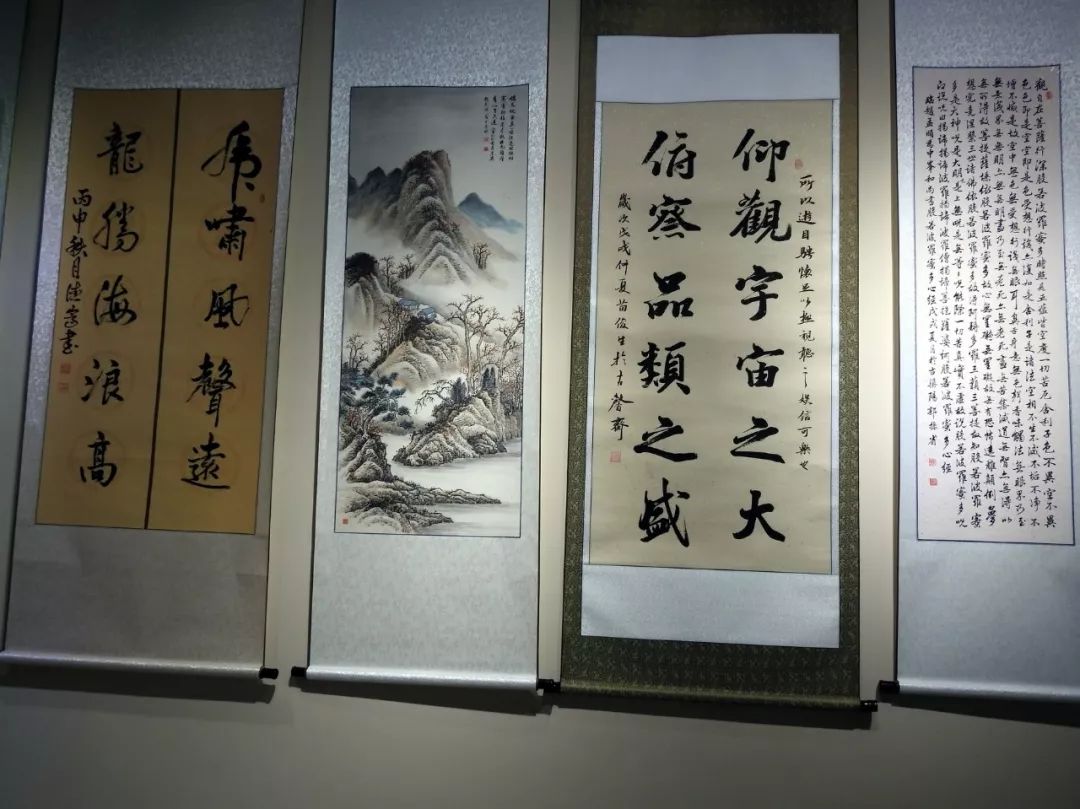 觀自在菩薩行深般若波羅蜜多時照見五蘊皆空度一切苦厄舍利子色不異空不異
色色即是空空即是色受想行識亦復如是舍利子是諸法空相不生不滅不垢不淨不
增不減是故空中無色無受想行識無眼耳鼻舌身意無色聲香味觸法無眼界乃至
無意識界無無明亦無無明盡乃至無老死亦無老死盡無苦集滅道無智亦無得以
無所得故菩提薩埵依般若波羅蜜多故心無罣礙無罣礙故無有恐怖遠離顛倒夢
想究竟涅槃三世諸佛依般若波羅蜜多故得阿耨多羅三藐三菩提故知般若波羅蜜
多是大神咒是大明咒是無上咒是無等等咒能除一切苦真實不虛故說般若波羅蜜多咒
即說咒曰揭諦揭諦波羅揭諦波羅僧揭諦菩提薩婆訶般若波羅蜜多心經
臨趙孟頫書般若波羅蜜多心經戊戌夏月於古
所以遊目騁懷足以極視聽之娛信可樂也
仰觀宇宙之大
俯察品類之盛
歲次戊戌仲夏苗俊生於古馨齋
虎嘯風聲遠
龍騰海浪高
丙申秋月德